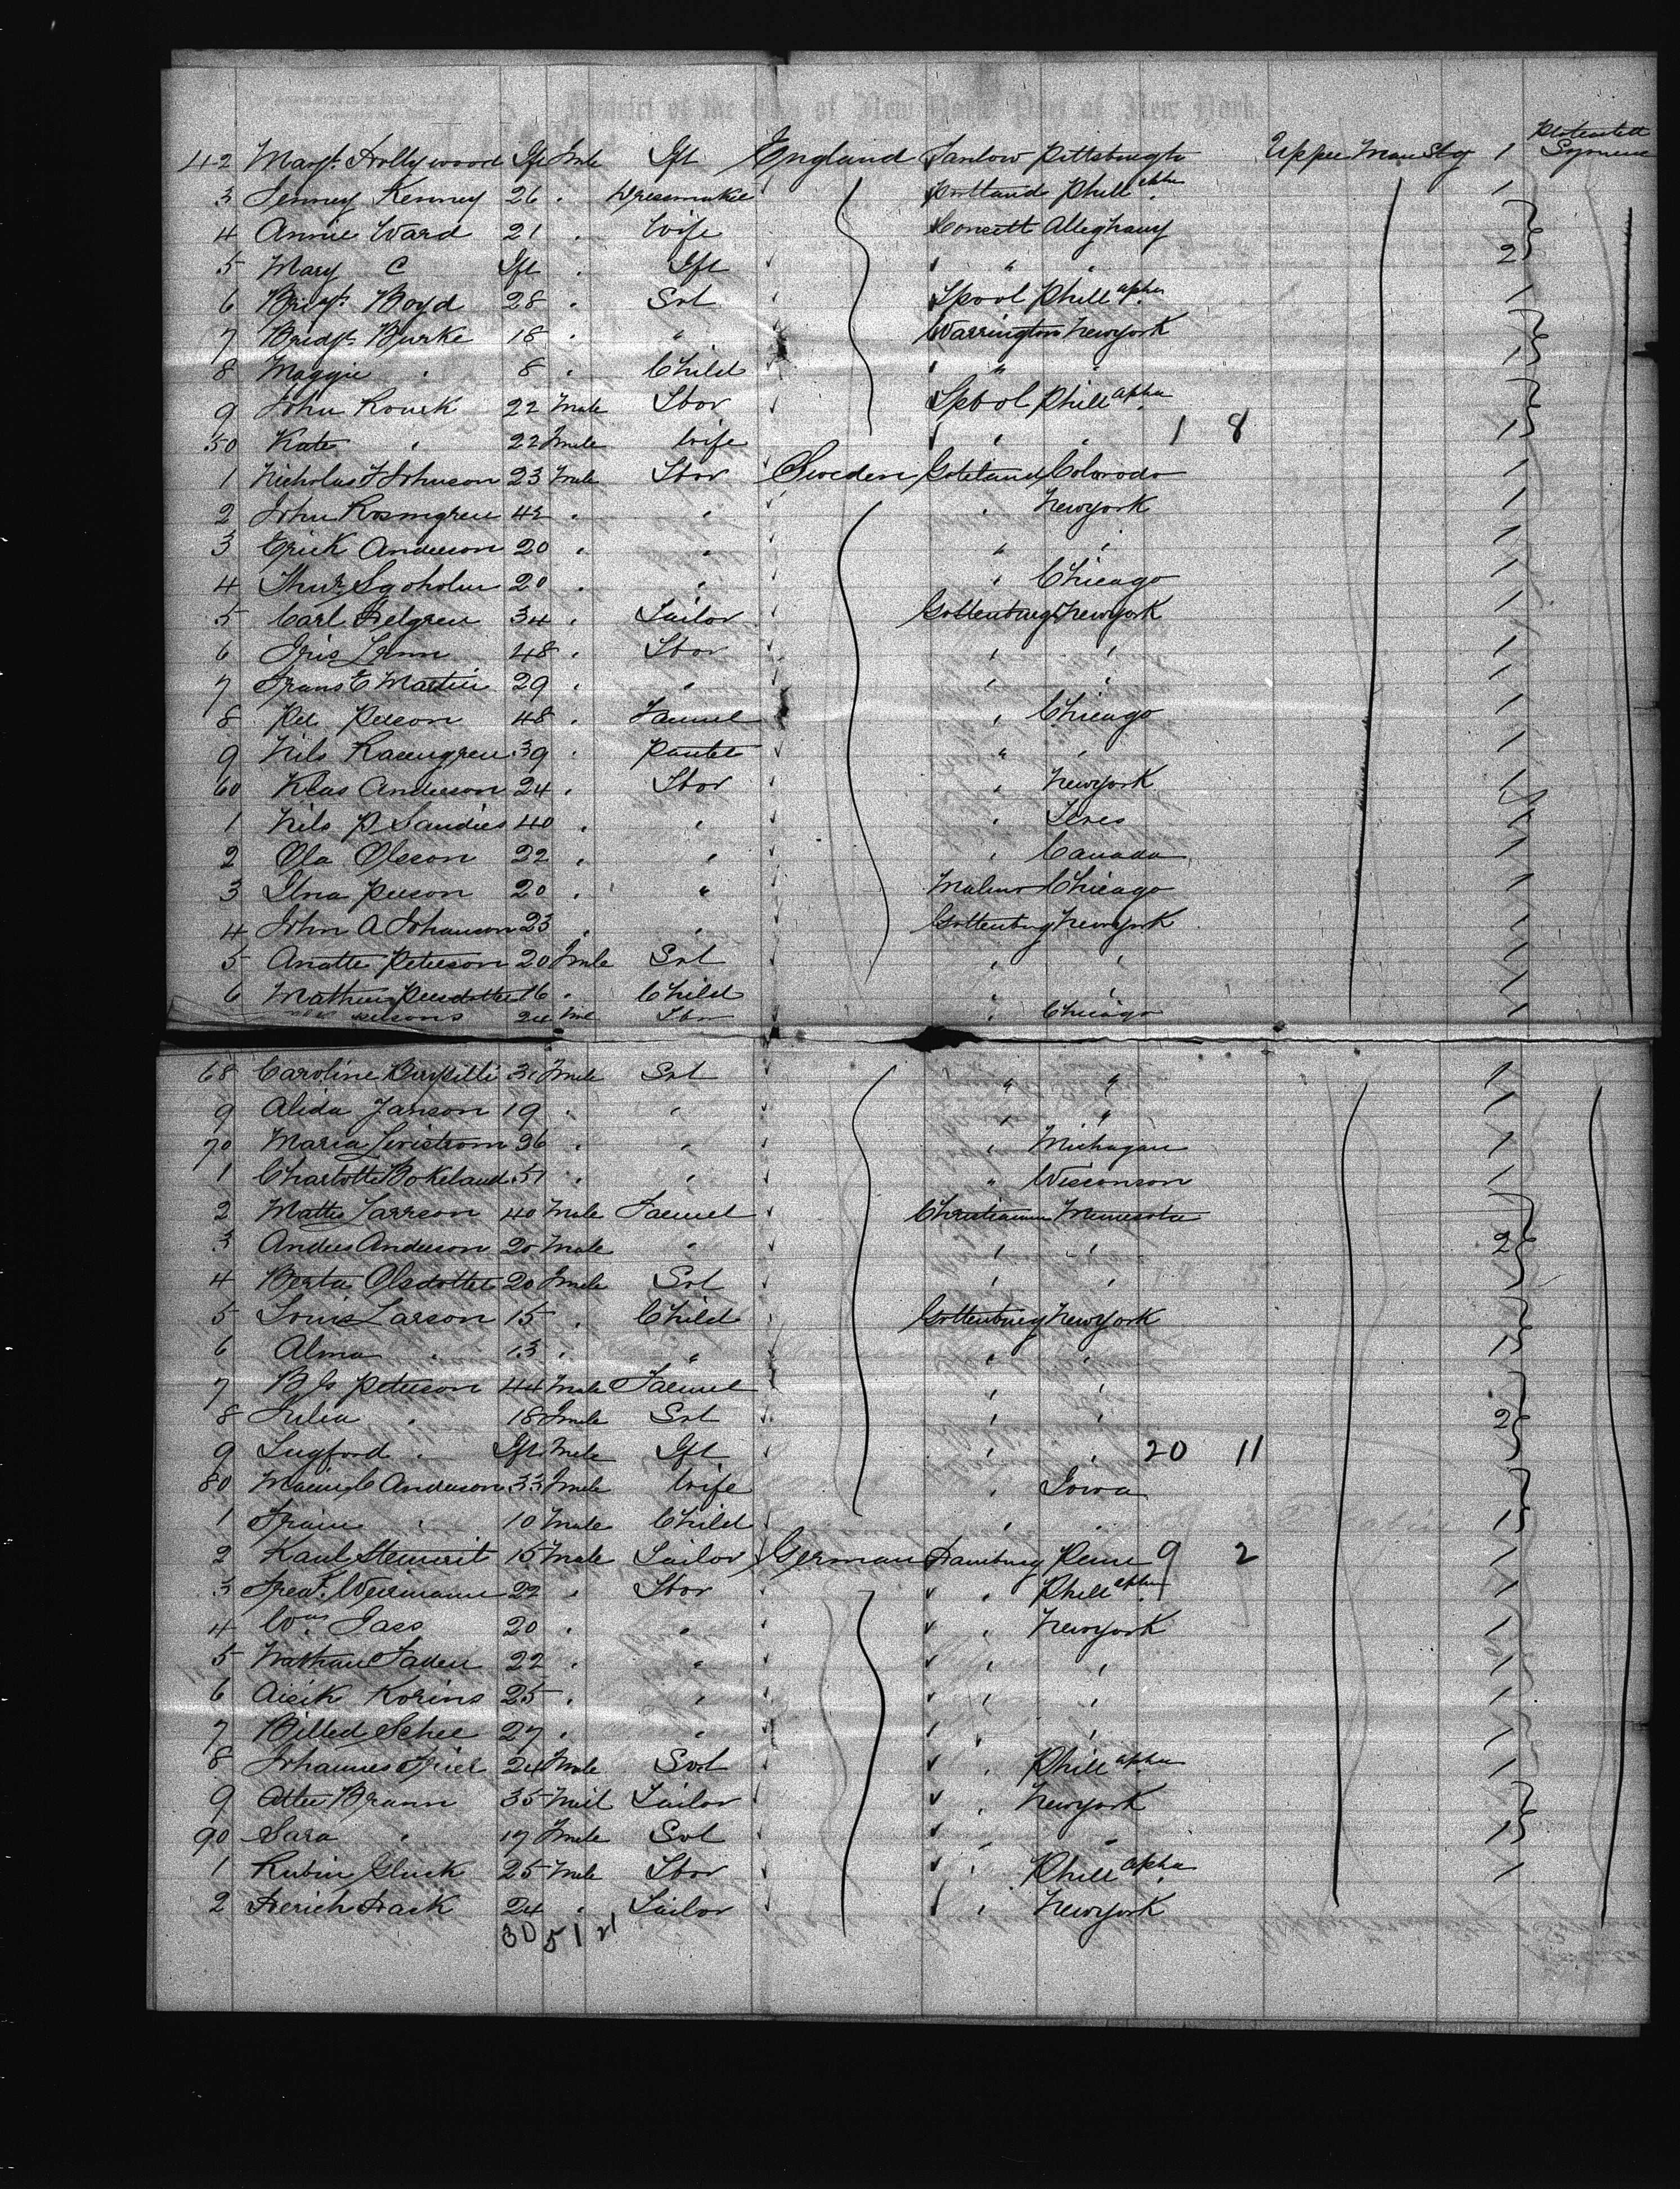 District of the City of New York, Port of New York.
Protracted Sojourn
42 Margt Hollywood Ift Fmle Ift England Pittsburgh Upper Main Stg 1
3 Jenney Kenney 26 " Dressmaker Portland Phill apha 1
4 Annie Ward 21 " Wife Consett Alleghany
5 Mary C Ift " Ift " " 2
6 Bridgt Boyd 28 " Svt Lpool Phill apha 1
7 Bridgt Burke 18 " " Warrington Newyork
8 Maggie " 8 " Child " " 1
9 John Rourk 22 Male Lbor Lpool Phill apha
50 Kate " 22 Fmle Wife " " 1 8 1
1 Nicholas Johnson 23 Male Lbor Sweden Goteland Colorado 1
2 John Rosmgren 42 " " " Newyork 1
3 Erick Anderson 20 " " " " 1
4 20 " " " Chicago 1
5 Carl Helgren 34 " Tailor Gottenburg Newyork 1
6 48 " Lbor " " 1
7 Frans E Martin 29 " " " " 1
8 Per Person 48 " Farmer " Chicago 1
9 Nils 39 " Painter " " 1
60 Klas Anderson 24 " Lbor " Newyork 1
1 Nils P Sandies 40 " " " 1
2 Ola Olsson 22 " " " Canada 1
3 Elna Person 20 " " Malmo Chicago 1
4 John A Johanson 23 " " Gottenburg Newyork 1
5 Anatte Peterson 20 Fmle Svt " " 1
6 Persdotter 16 " Child " " 1
24 Mle Lbor " Chicago 1
68 Caroline 31 Fmle Svt " " 1
9 Alida Janson 19 " " " " 1
70 Maria Levistrom 36 " " " Michagan 1
1 Charlotte Bokeland 51 " " " Wisconson 1
2 Matts Larrson 40 Male Farmer Christiania Minnesota
3 Andres Anderson 20 Male " " " 2
4 Berta Olsdotter 20 Fmle Svt " "
5 Louis Larson 15 " Child Gottenburg Newyork
6 Alma " 13 " " " " 1
7 Peterson 44 Male Farmer " "
8 Julia " 18 Fmle Svt " " 2
9 Lugford " Ift Male Ift " " 20 11
80 Anderson 33 Fmle Wife " Iowa
1 " 10 Male Child " " 1
2 Karl Stewart 15 Male Tailor German Hamburg Penn 9 2 1
3 Fredk Weirmann 22 " Lbor " Phill apha 1
4 Wm Jass 20 " " " Newyork 1
5 Nathan Faden 22 " " " " 1
6 Aisik Korins 25 " " " " 1
7 Schee 27 " " " " 1
8 Johannes 24 Male Svt " Phill apha 1
9 Brann 35 Male Tailor " Newyork
90 Sara " 17 Fmle Svt " " 1
1 Rubin Gluck 25 Male Lbor " Phill apha 1
2 Herich Hack 24 " Tailor " Newyork
30 51 21